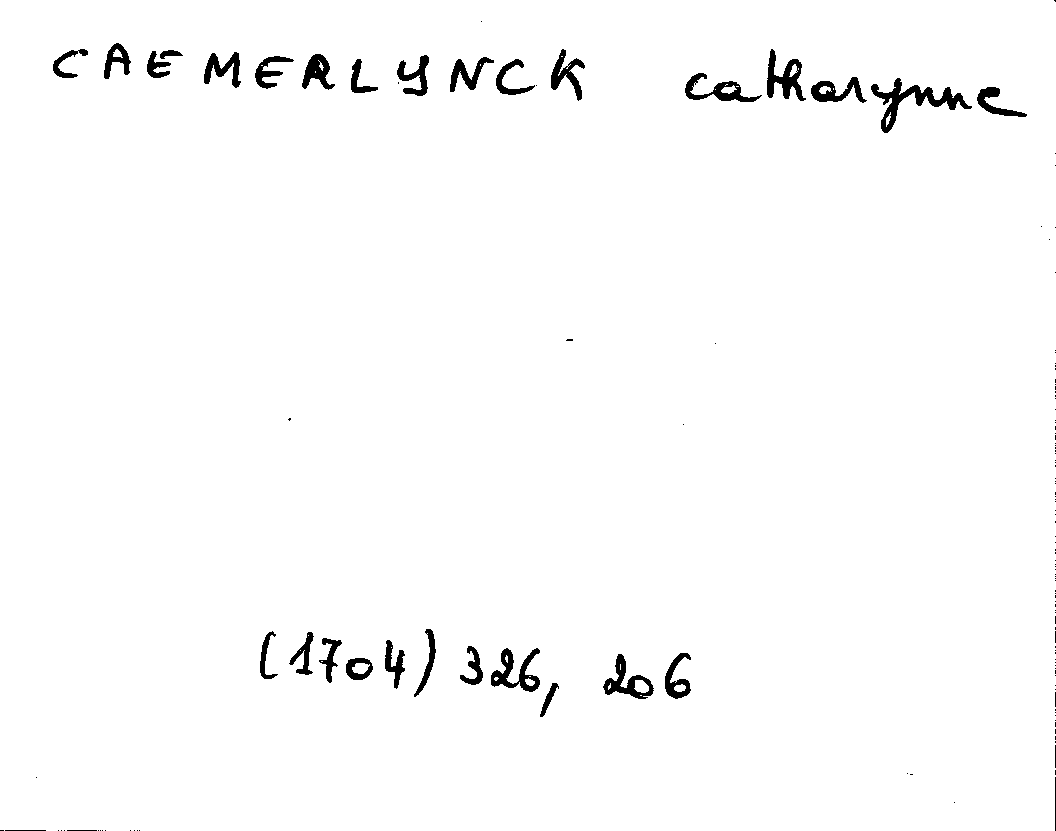 CAEMERLYNCK catharynne
(1704) 326, 206